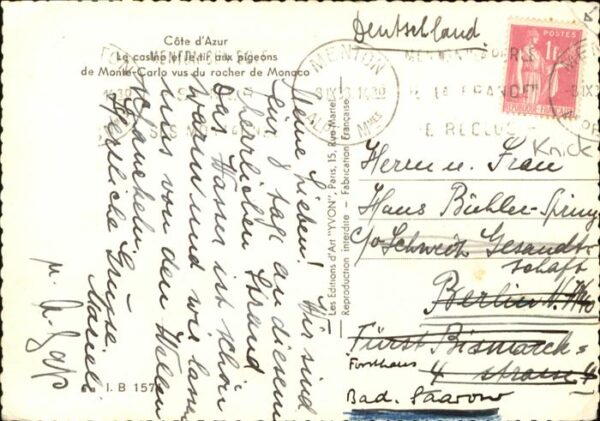 Côte d'Azur
Le casino et le tir aux pigeons
de Monte-Carlo vus du rocher de Monaco
Deutschland
MENTON
POSTES
1F
REPUBLIQUE FRANÇAISE
MENTON
LA FRANCE
Knick
Meine Lieben! Wir sind
für 1 Tag an diesem
herrlichen Strand
das Wasser ist schön
warm und wir lassen
uns von den Wellen
schaukeln.
Herzliche Grüsse
Les Editions d'Art "YVON", Paris, 15, Rue Martel
Reproduction interdite - Fabrication Française
Herrn u. Frau
Hans Bühler-
c/o Schweiz. Gesandt-
schaft
Berlin
Fürst Bismarck-
strasse 4
Forsthaus
Bad. Saarow
I. B 157